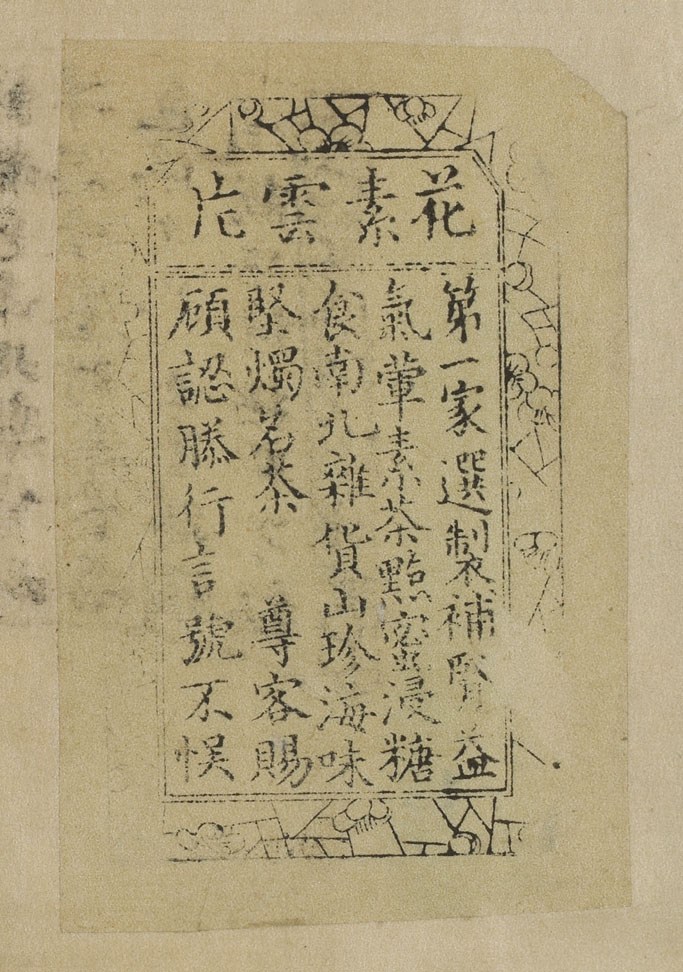 花素雲片
第一家選製補腎益
氣葷素茶點蜜浸糖
食南北雜貨山珍海味
堅燭茗茶 尊客賜
顧認勝行言號不悞